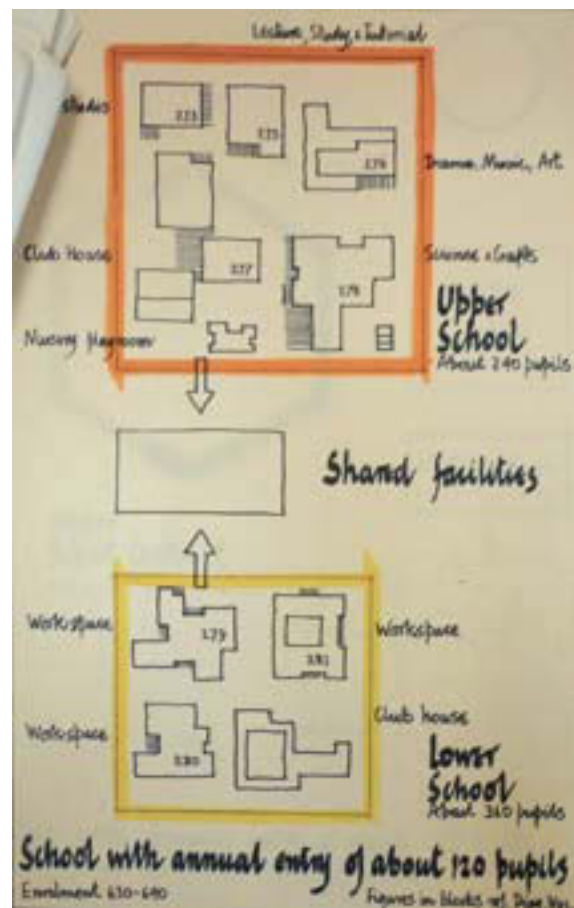 Lecture, Study & Tutorial
Drama, Music, Art
Club House
277
Science & Crafts
278
Upper
School
Nursing playroom
About 240 pupils
Shared facilities
Workspace
279
Workspace
281
Workspace
280
Club house
Lower
School
About 360 pupils
School with annual entry of about 120 pupils
Enrolment 630-690
Figures in blocks ref.